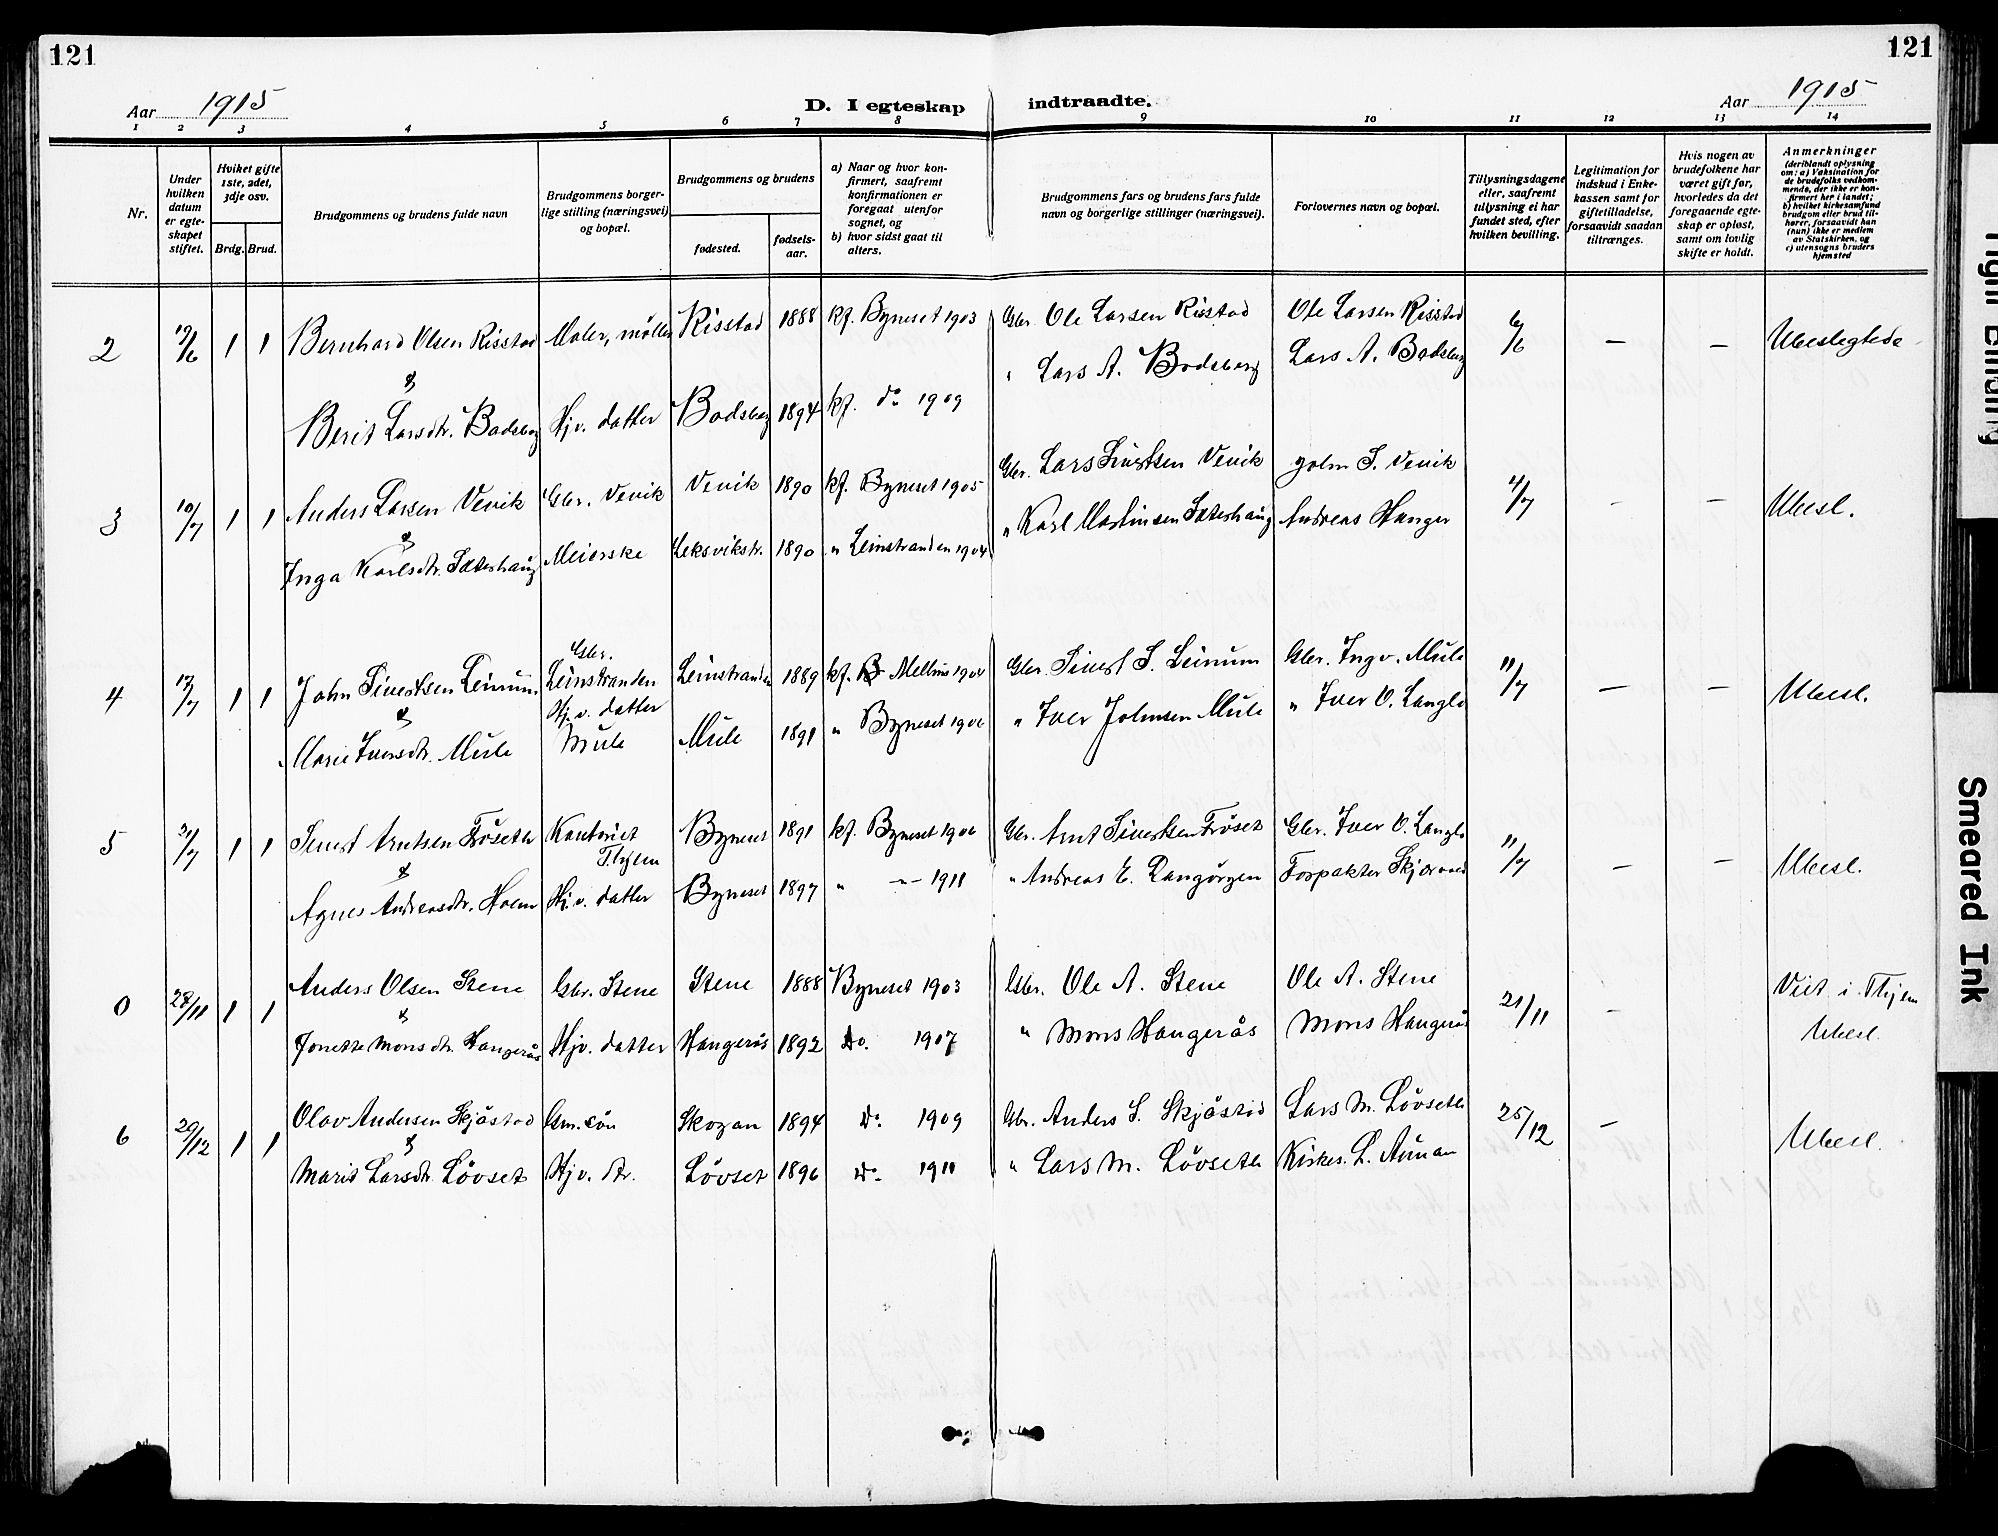 121
121
Aar 1915
D. I egteskap indtraadte.
Aar 1915
1 2 3 4 5 6 7 8 9 10 11 12 13 14
Nr.
Under hvilken datum er egteskapet stiftet.
Hvilket gifte 1ste, 2det, 3dje osv.
Brdg. Brud.
Brudgommens og brudens fulde navn
Brudgommens borgerlige stilling (næringsvei) og bopæl.
Brudgommens og brudens
fødested.
fødselsaar.
a) Naar og hvor konfirmert, saafremt konfirmationen er foregaat utenfor sognet, og
b) hvor sidst gaat til alters.
Brudgommens fars og brudens fars fulde navn og borgerlige stillinger (næringsvei).
Forlovernes navn og bopæl.
Tillysningsdagene eller, saafremt tillysning ei har fundet sted, efter hvilken bevilling.
Legitimation for indskud i Enkekassen samt for giftetilladelse, forsaavidt saadan tiltrænges.
Hvis nogen av brudefolkene har været gift før, hvorledes da det foregaaende egteskap er opløst, samt om lovlig skifte er holdt.
Anmerkninger
(deriblandt oplysning om: a) Vaksination for de brudefolks vedkommende, der ikke er konfirmert her i landet; b) hvilket kirkesamfund brudgom eller brud tilhører, forsaavidt han (hun) ikke er medlem av Statskirken, og c) utensogns bruders hjemsted
2 /6 1 1 Bernhard Olsen Risstad Maler, møller Risstad 1888 kf. Byneset 1903 Gbr. Ole Larsen Risstad Ole Larsen Risstad 6/6 — — Ubeslegtede
&
Berit Larsdtr. Bodsberg Hjv. datter Bodsberg 1894 kf. do 1909 " Lars A. Bodsberg Lars A. Bodsberg
3 10/7 1 1 Anders Larsen Vevik Gbr. Vevik Vevik 1890 kf. Byneset 1905 Gbr. Lars Sivertsen Vevik John S. Vevik 4/7 - — Ubesl.
&
Inga Karlsdtr. Sæterhaug Meierske Leksvikstr. 1890 " Leinstranden 1904 " Karl Martinsen Sæterhaug Andreas Hanger
4 17/7 1 1 John Sivertsen Leinum Gbr. Leinstranden Leinstranden 1889 kf. Melhus Gbr. Sivert S. Leinum Gbr. Ingv. Mule 11/7 — — Ubesl.
&
Marie Iversdtr. Mule Hj.v. datter Mule Mule 1891 " Byneset 1906 " Iver Johnsen Mule " Iver O. Langlo
5 /7 1 1 Sivert Arntsen Frøseth Thyem Byneset 1891 kf. Byneset 1906 Gbr. Arnt Sivertsen Frøset Gbr. Iver O. Langlo 11/7 — — Ubesl.
&
Agnes Andreasdtr. Holm Hj.v. datter Byneset 1897 " —"— 1911 " Andreas E. Forpakter
0 28/11 1 1 Anders Olsen Stene Gbr. Stene Stene 1888 Byneset 1903 Gbr. Ole A. Stene Ole A. Stene 21/11 - Viet i Thyem
&
Jonette Monsdtr. Hangerås Hjv. datter Hangerås 1892 Do. 1907 " Mons Hangerås Mons Hangerås Ubesl.
6 29/12 1 1 Olav Andersen Skjåstad Gm. søn Skogan 1894 Do 1909 Gbr. Anders S. Skjåstad Lars M. Løvseth 25/12 — Ubesl.
&
Marit Larsdtr. Løvset Hjv. dtr. Løvset 1896 Do 1911 " Lars M. Løvseth Kirkes. L. Aunan
Tight Binding
Smeared Ink